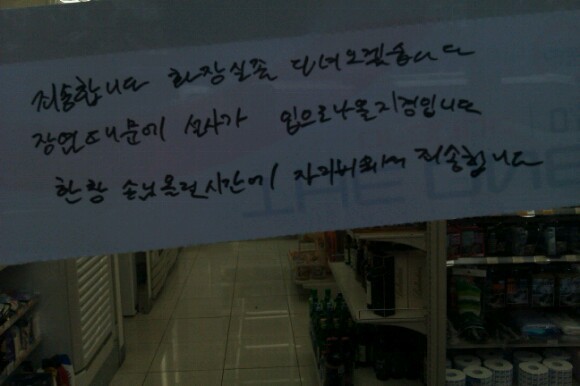 죄송합니다 화장실좀 다녀오겠습니다
장염때문에 설사가 입으로나올지경입니다
한창 손님몰릴시간에 자리비워서 죄송합니다
THE ONE